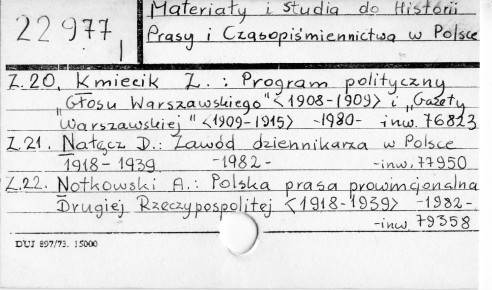 22977
I
Materiały i Studia do Historii
Prasy i Czasopiśmiennictwa w Polsce
Z.20. Kmiecik Z.: Program polityczny
„Głosu Warszawskiego" <1908-1909> i „Gazety
Warszawskiej" <1909-1915> -1980- inw. 76823
Z.21. Nałęcz D.: Zawód dziennikarza w Polsce
1918-1939 -1982- -inw. 77950
Z.22. Notkowski A.: Polska prasa prowincjonalna
Drugiej Rzeczypospolitej <1918-1939> -1982-
-inw. 79358
DUJ 897/73. 15000